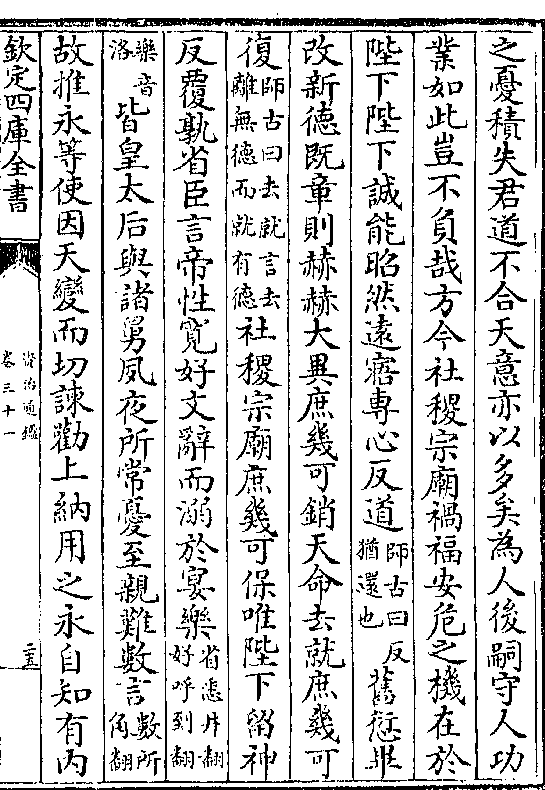 之憂積失君道不合天意亦以多矣為人後嗣守人功
業如此豈不負哉方今社稷宗廟禍福安危之機在於
陛下陛下誠能昭然遠寤專心反道師古曰反猶還也舊愆畢
改新德既章則赫赫大異庶幾可銷天命去就庶幾可
復師古曰去就言去離無德而就有德社稷宗廟庶幾可保唯陛下留神
反覆孰省臣言帝性寬好文辭而溺於宴樂省悉井翻好呼到翻
樂音洛皆皇太后與諸舅夙夜所常憂至親難數言數所角翻
故推永等使因天變而切諫勸上納用之永自知有内
欽定四庫全書
資治通鑑
卷三十一
二五